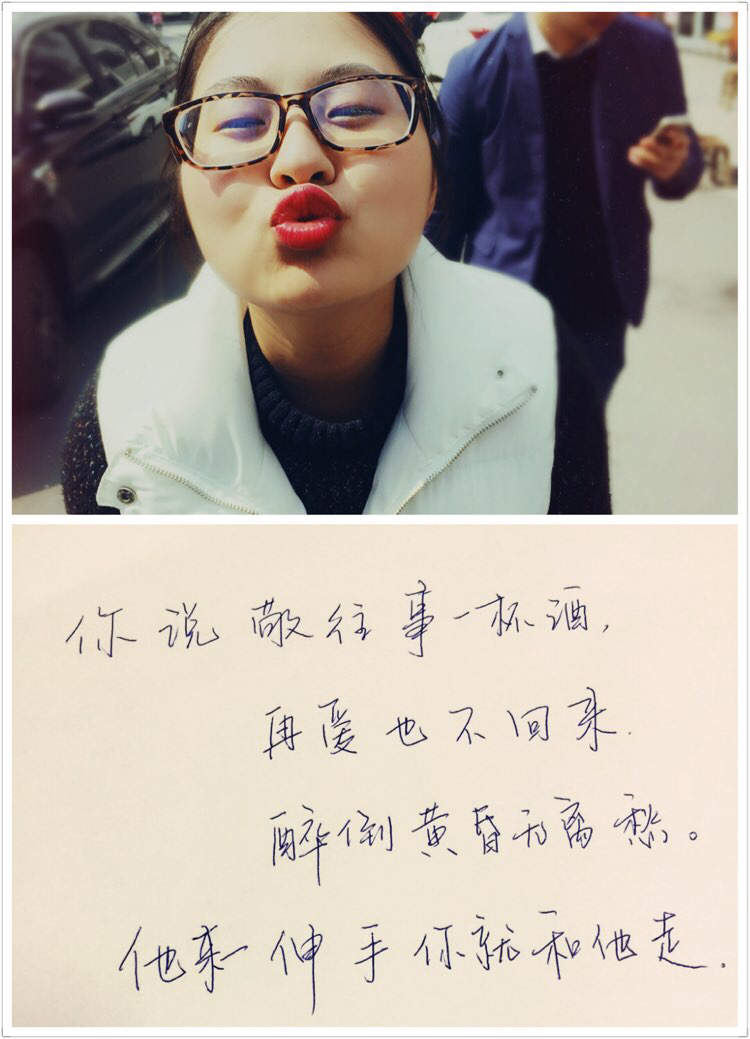 你说敬往事一杯酒,
再爱也不回来.
醉倒黄昏为离愁。
他来一伸手你就和他走.